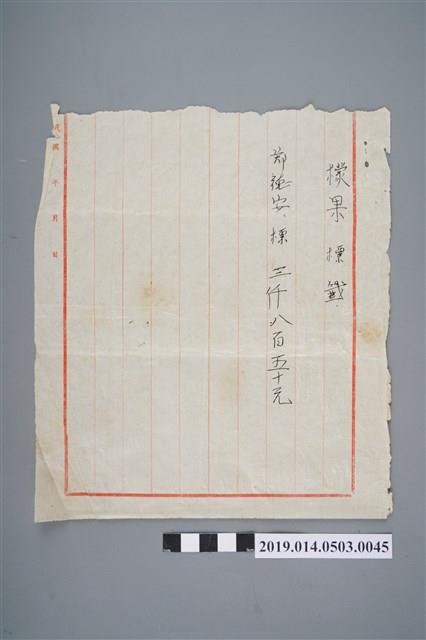 檬果標籤.
鄭德安.標 三仟八百五十元
民國 年 月 日
2019.014.0503.0045